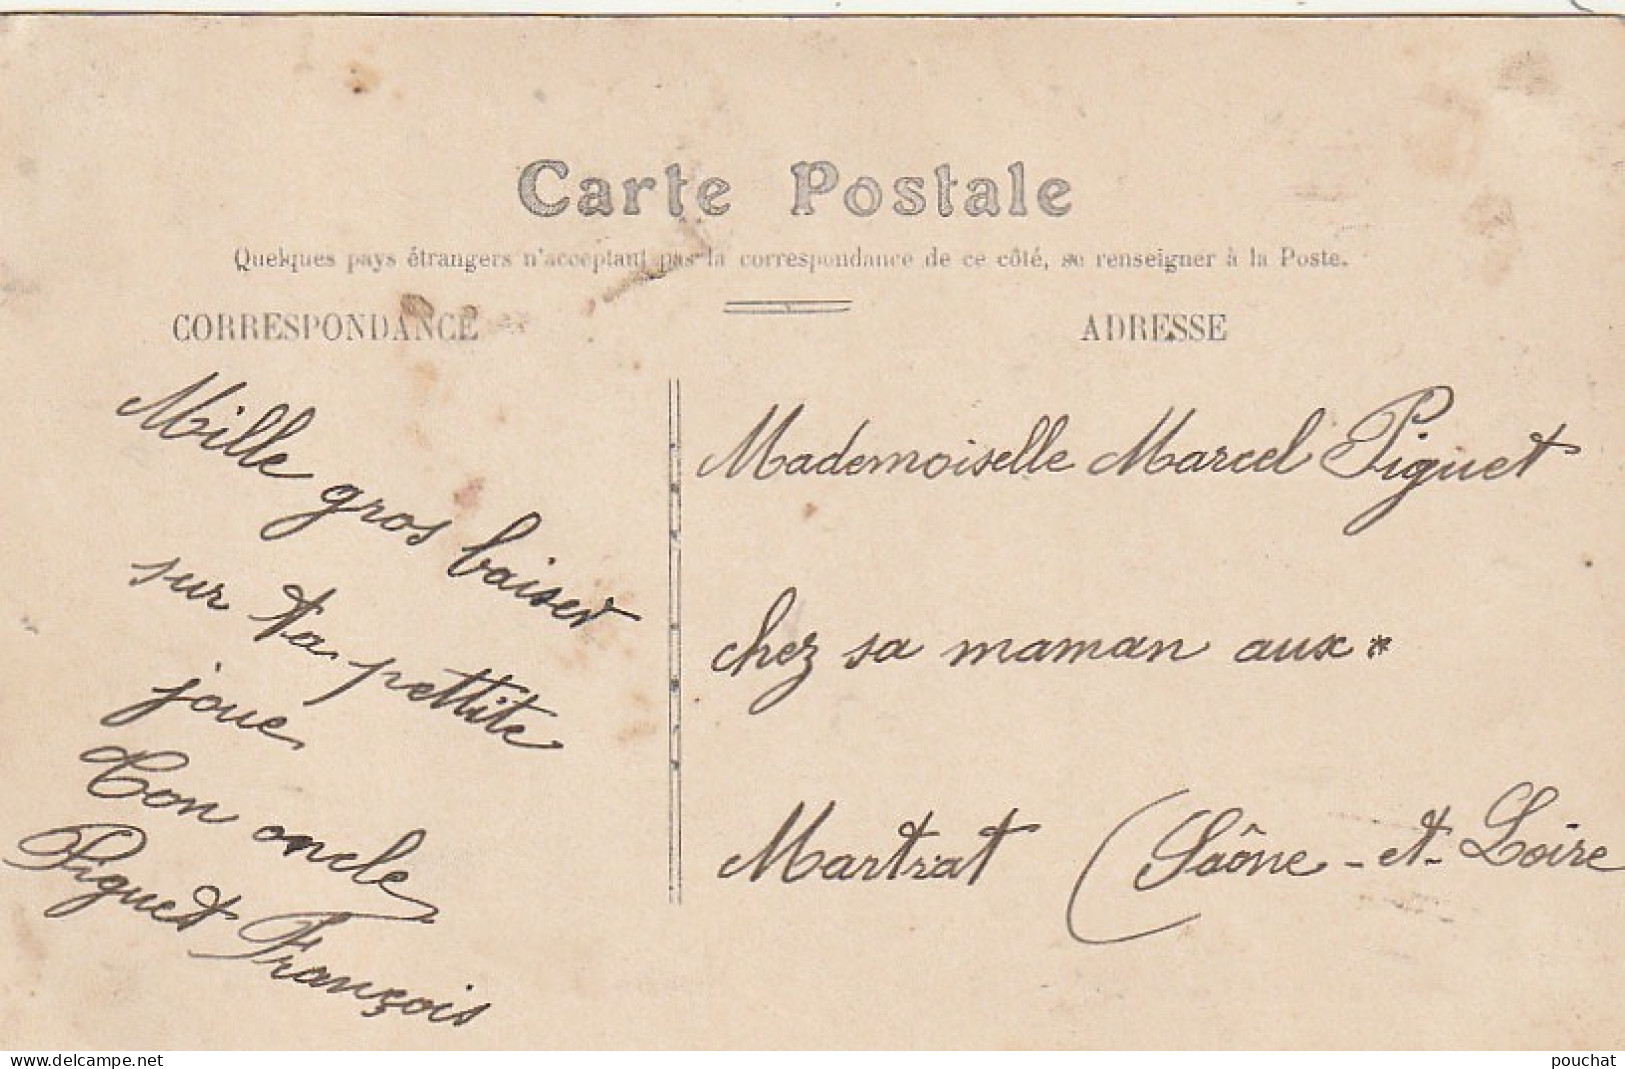 Carte Postale
Quelques pays étrangers n'acceptant pas la correspondance de ce côté, se renseigner à la Poste.
CORRESPONDANCE
Mille gros baiser
sur ta pettite
joue
Ton oncle
Piguet François
ADRESSE
Mademoiselle Marcel Piguet
chez sa maman aux
Martrat (Saône-et-Loire
www.delcampe.net
pouchat